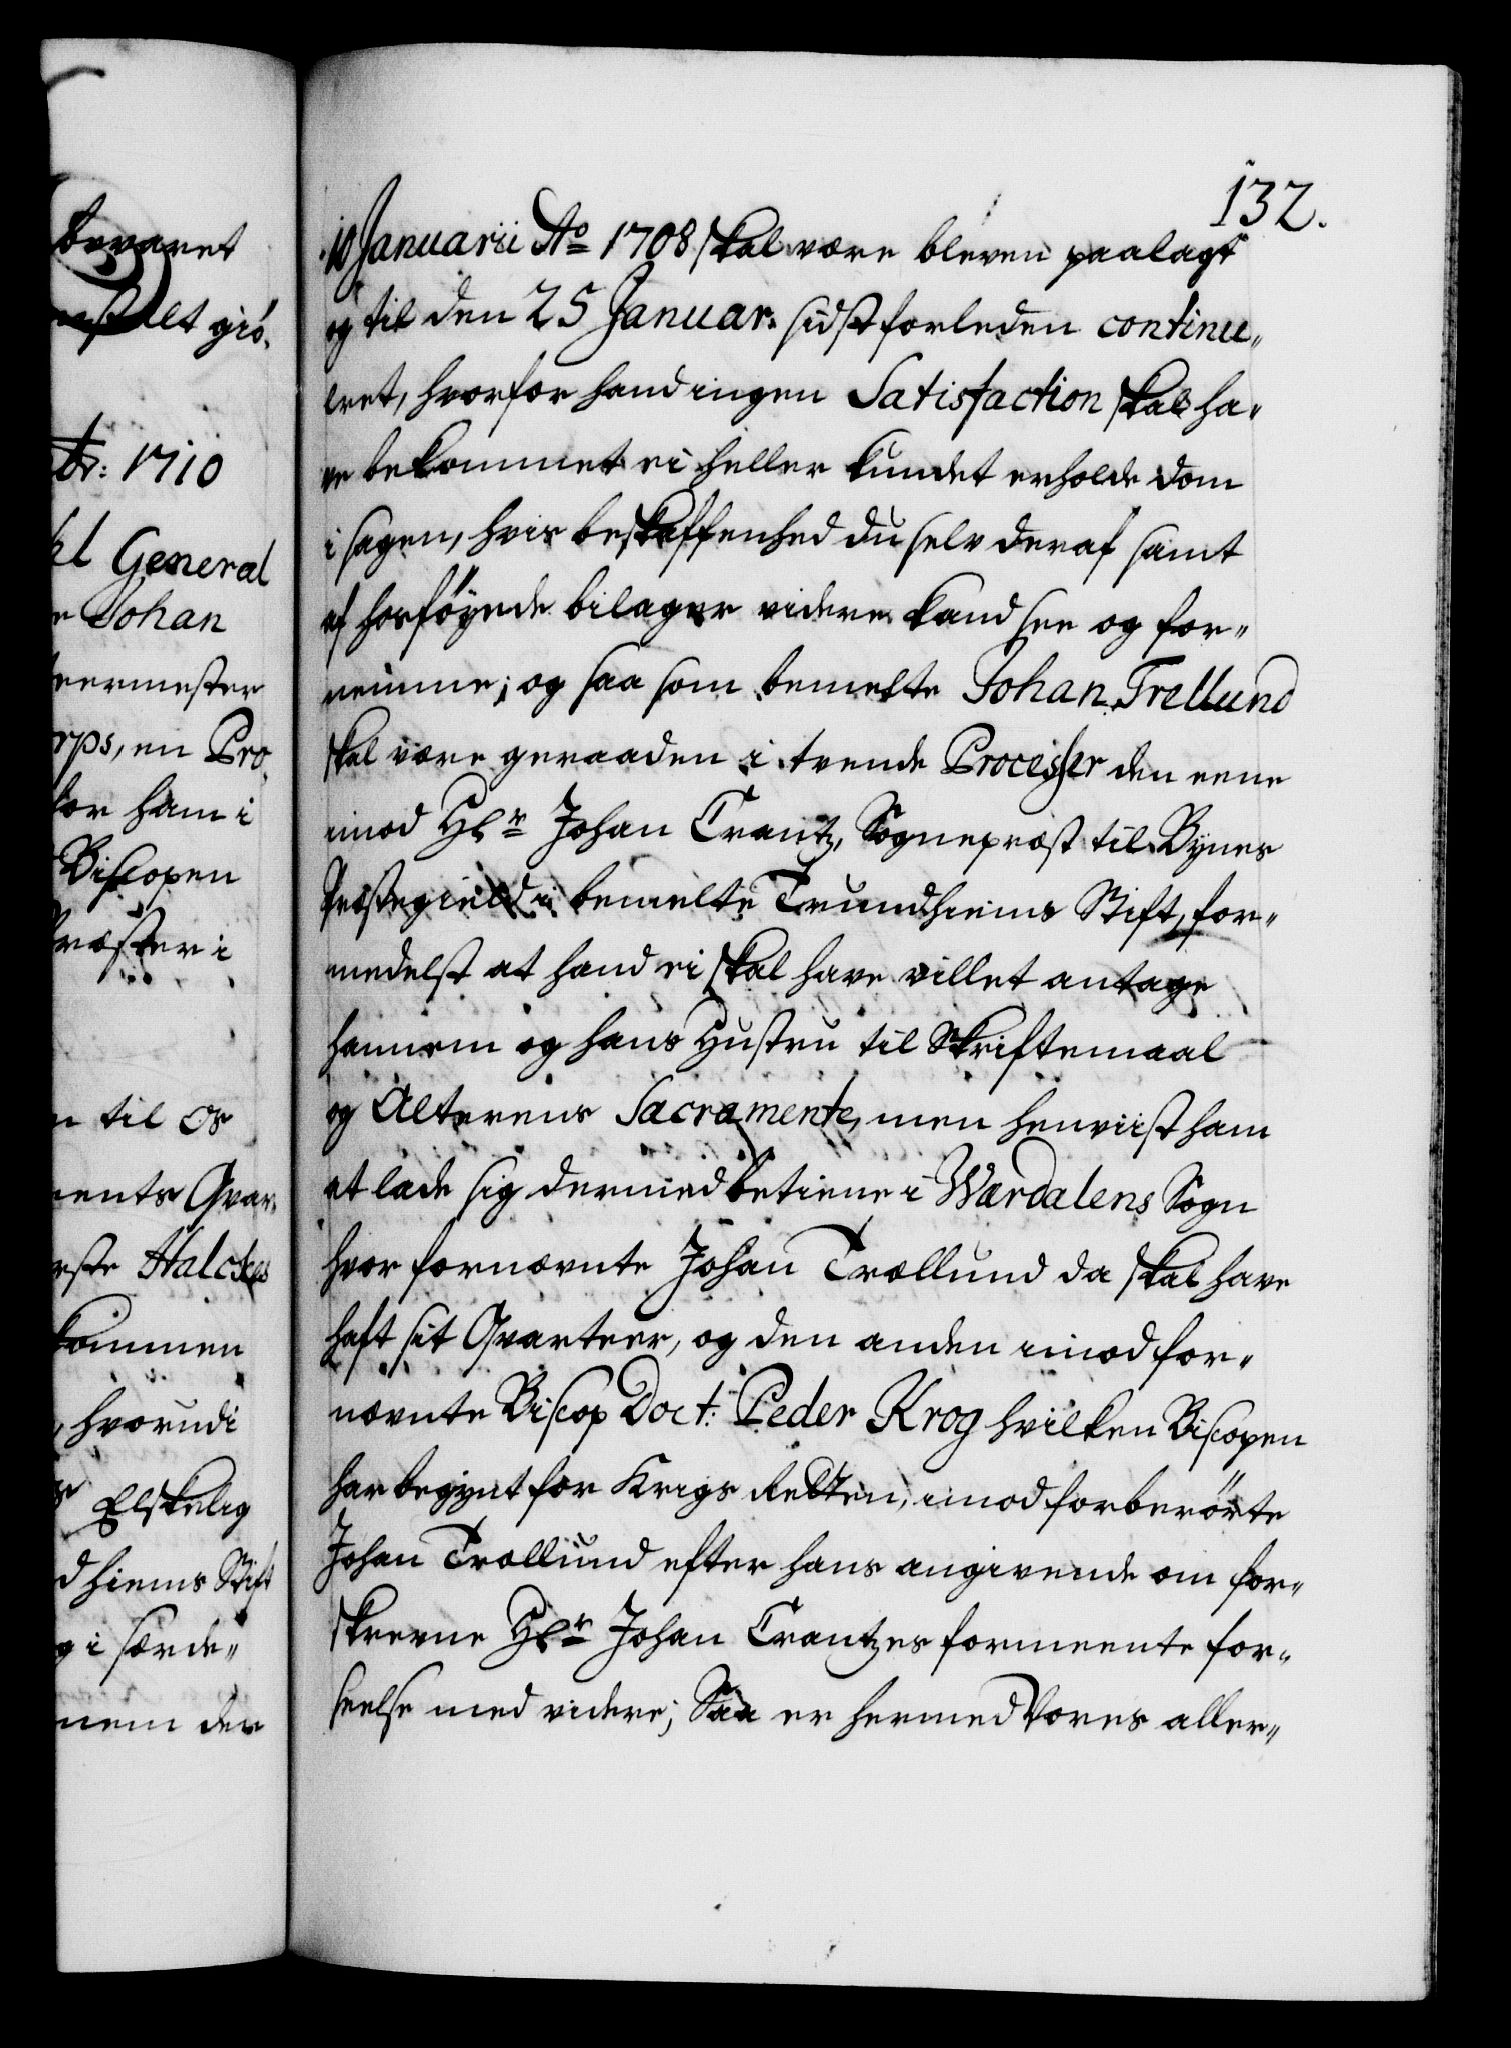 bevaret
nstalt giö„
br: 1710
kl General
e Johan
teermester
rps, en Pro„
for ham i
Biscopen
Præster i
n til os
ments Qvar„
rste Halckes
kommen
, hvorudi
Elskelig
dhiems Stift
g i særde„
nem der
132.
10 Januarii Ao 1708 skal være bleven paalagt
og til den 25 Januar: sidstforleden continu„
eret, hvorfor hand ingen Satisfaction skal ha„
ve bekommet ei heller kundet erholde dom
i sagen, hvis beskaffenhed du selv deraf samt
af hosföyede bilager videre kand see og for„
nemme; og saa som bemelte Johan Trellund
skal være geraaden i tvende Processer den eene
imod Hr Johan Crantz, Sognepræst til Bynes
Præstegield i bemelte Trundhiems Stift, for„
medelst at hand ei skal have villet antage
hannem og hans Hustru til Skriftemaal
og Alterens Sacramente, men henviist ham
at lade sig dermed betiene i Wærdalens Sogn
hvor fornævnte Johan Trællund da skal have
haft sit Qvarteer, og den anden imod for„
nævnte Biscop Doct: Peder Krog hvilken Biscopen
har begynt for Krigs Retten, imod forberörte
Johan Trællund efter hans angivende om for„
skrevne Hr Johan Crantzes formeente for„
seelse med videre; Saa er hermed Vores aller„